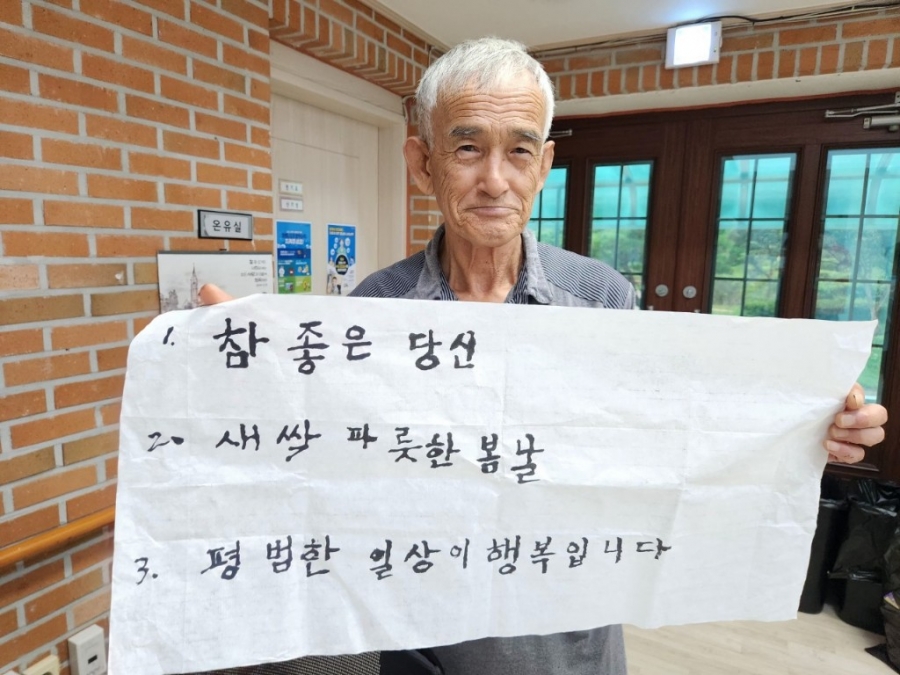 온유실
1. 참 좋은 당신
2. 새싹 파릇한 봄날
3. 평범한 일상이 행복입니다